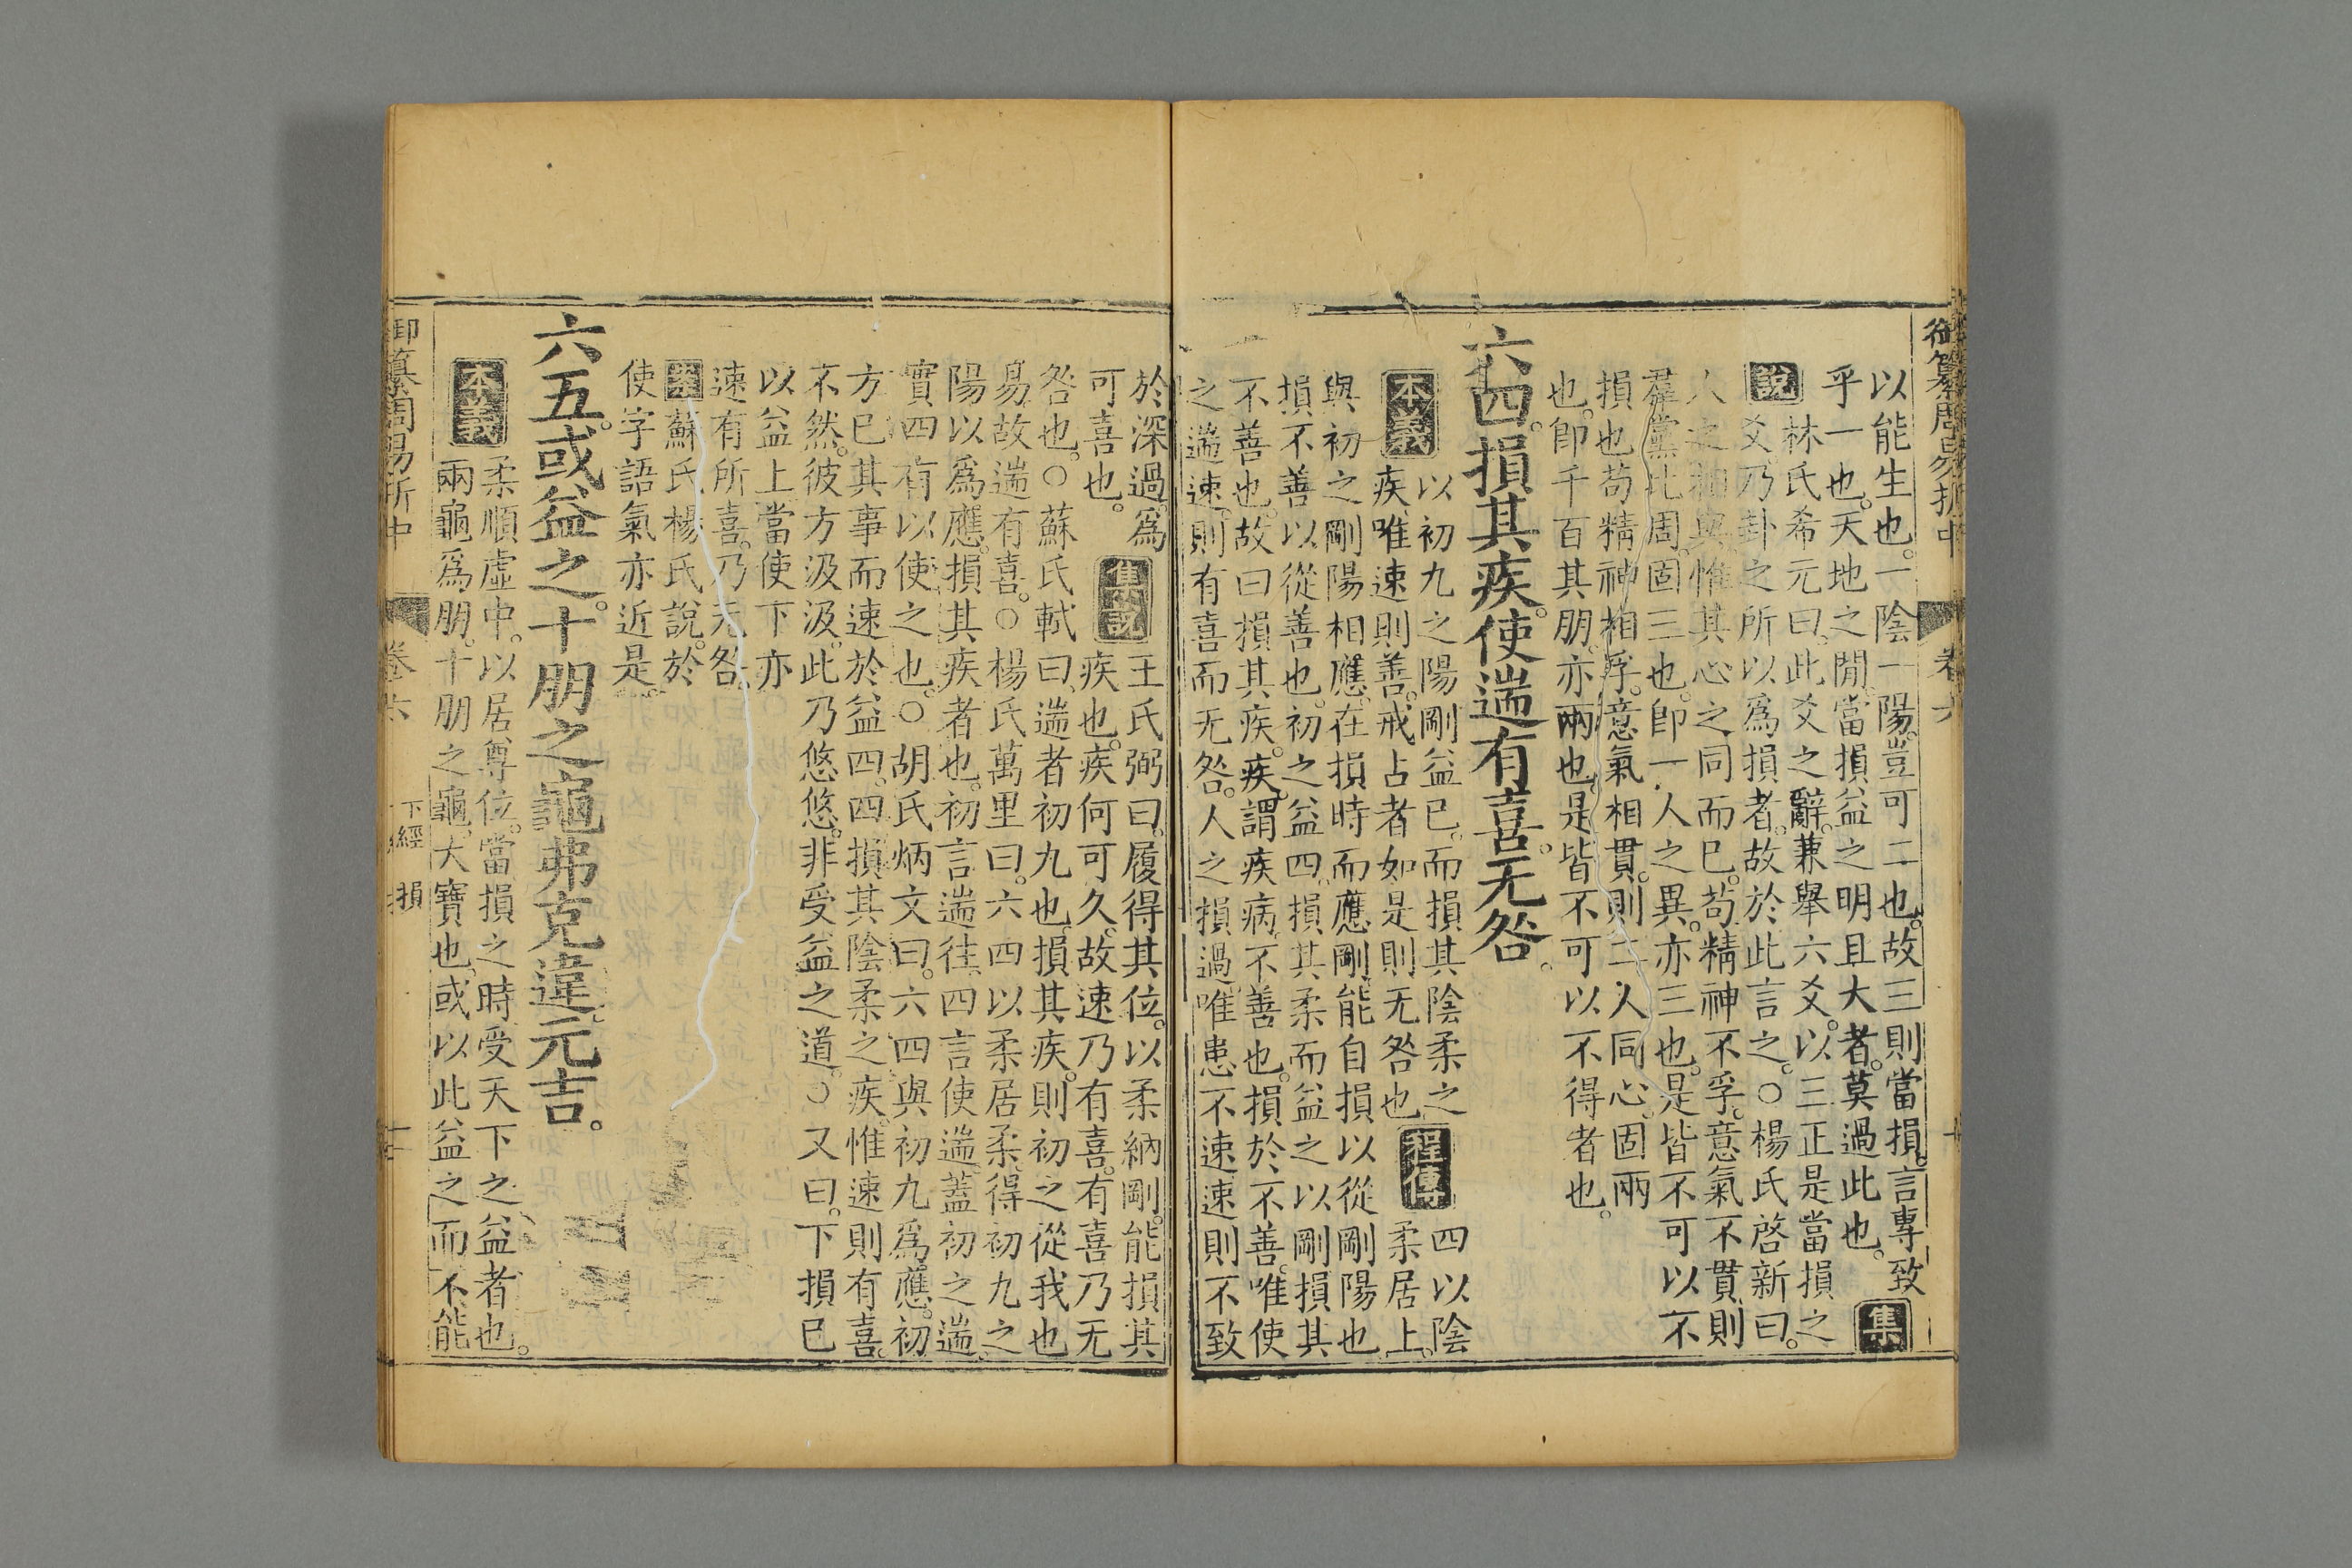 御纂周易折中 卷六
以能生也。一陰一陽。豈可二也。故三則當損。言專致
乎一也。天地之閒。當損益之明且大者。莫過此也。集
說林氏希元曰。此爻之辭。兼舉六爻。以三正是當損之
爻。乃卦之所以爲損者。故於此言之。○楊氏啓新曰。
人之相與。惟其心之同而已。苟精神不孚。意氣不貫。則
羣黨比周。固三也。卽一人之異。亦三也。是皆不可以不
損也。苟精神相孚。意氣相貫。則二人同心。固兩
也。卽千百其朋。亦兩也。是皆不可以不得者也。
六四。損其疾。使遄有喜。无咎。
本義以初九之陽剛益已。而損其陰柔之
疾。唯速則善。戒占者如是則无咎也程傳四以陰
柔居上。
與初之剛陽相應。在損時而應剛。能自損以從剛陽也。
損不善以從善也。初之益四。損其柔而益之以剛。損其
不善也。故曰損其疾。疾謂疾病。不善也。損於不善。唯使
之遄速。則有喜而无咎。人之損過。唯患不速。速則不致
於深過。爲
可喜也。集說王氏弼曰。履得其位。以柔納剛。能損其
疾也。疾何可久。故速乃有喜。有喜乃无
咎也。○蘇氏軾曰。遄者初九也。損其疾。則初之從我也
易。故遄有喜。○楊氏萬里曰。六四以柔居柔。得初九之
陽以爲應。損其疾者也。初言遄往。四言使遄。蓋初之遄。
實四有以使之也。○胡氏炳文曰。六四與初九爲應。初
方已其事而速於益四。四損其陰柔之疾。惟速則有喜。
不然。彼方汲汲。此乃悠悠。非受益之道。○又曰。下損已
以益上。當使下亦
速有所喜。乃无咎。
案蘇氏楊氏說。於
使字語氣亦近是。
六五。或益之。十朋之龜。弗克違。元吉。
本義柔順虛中。以居尊位。當損之時。受天下之益者也。
兩龜爲朋。十朋之龜。大寶也。或以此益之而不能
御纂周易折中 卷六 下經 損